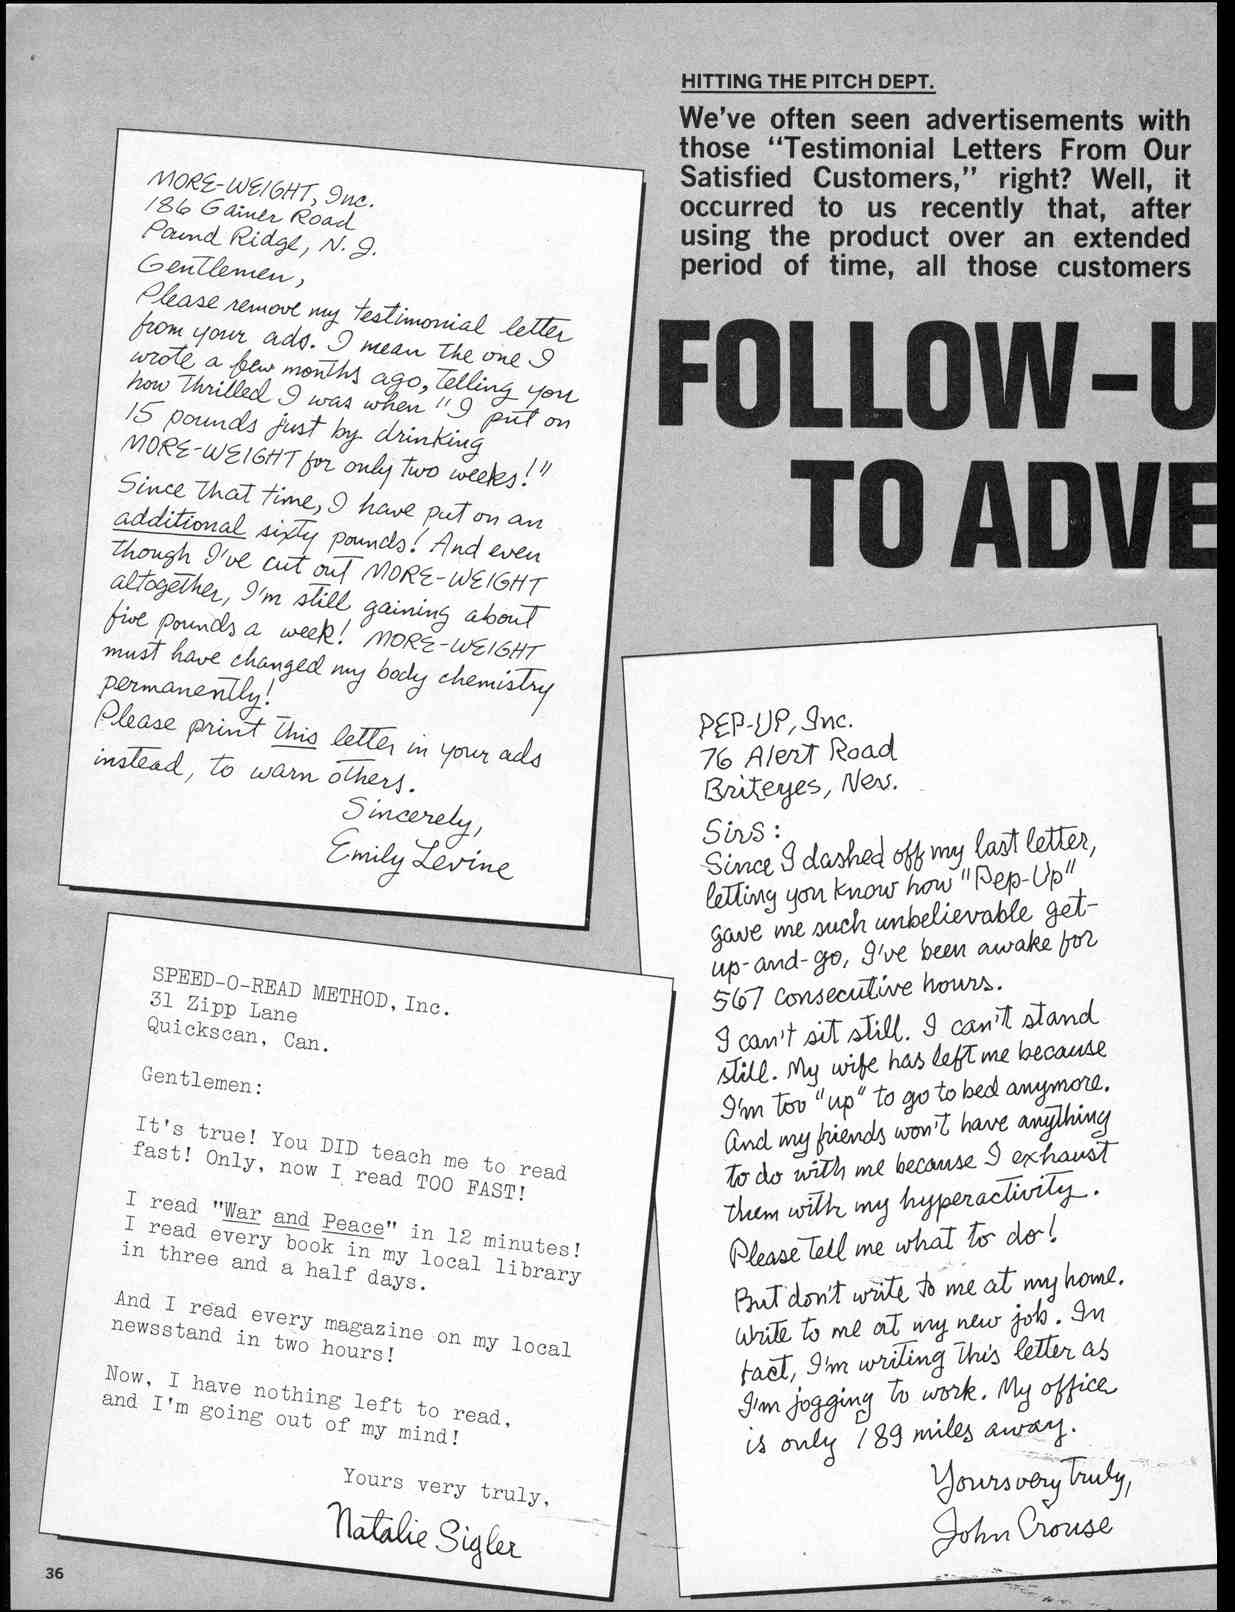 HITTING THE PITCH DEPT.
We've often seen advertisements with
those "Testimonial Letters From Our
Satisfied Customers," right? Well, it
occurred to us recently that, after
using the product over an extended
period of time, all those customers
FOLLOW-U
TO ADVE
MORE-WEIGHT, Inc.
186 Gainer Road
Pound Ridge, N.J.
Gentlemen,
Please remove my testimonial letter
from your ads. I mean the one I
wrote a few months ago, telling you
how thrilled I was when "I put on
15 pounds just by drinking
MORE-WEIGHT for only two weeks!"
Since that time, I have put on an
additional sixty pounds! And even
though I've cut out MORE-WEIGHT
altogether, I'm still gaining about
five pounds a week! MORE-WEIGHT
must have changed my body chemistry
permanently!
Please print this letter in your ads
instead, to warn others.
Sincerely,
Emily Levine
SPEED-O-READ METHOD, Inc.
31 Zipp Lane
Quickscan, Can.
Gentlemen:
It's true! You DID teach me to read
fast! Only, now I read TOO FAST!
I read "War and Peace" in 12 minutes!
I read every book in my local library
in three and a half days.
And I read every magazine on my local
newsstand in two hours!
Now, I have nothing left to read,
and I'm going out of my mind!
Yours very truly,
Natalie Sigler
PEP-UP, Inc.
76 Alert Road
Briteyes, Nev.
Sirs:
Since I dashed off my last letter,
letting you know how "Pep-Up"
gave me such unbelievable get-
up-and-go, I've been awake for
567 consecutive hours.
I can't sit still. I can't stand
still. My wife has left me because
I'm too "up" to go to bed anymore.
And my friends won't have anything
to do with me because I exhaust
them with my hyperactivity.
Please tell me what to do!
But don't write to me at my home.
Write to me at my new job. In
fact, I'm writing this letter as
I'm jogging to work. My office
is only 189 miles away.
Yours very truly,
John Crouse
36